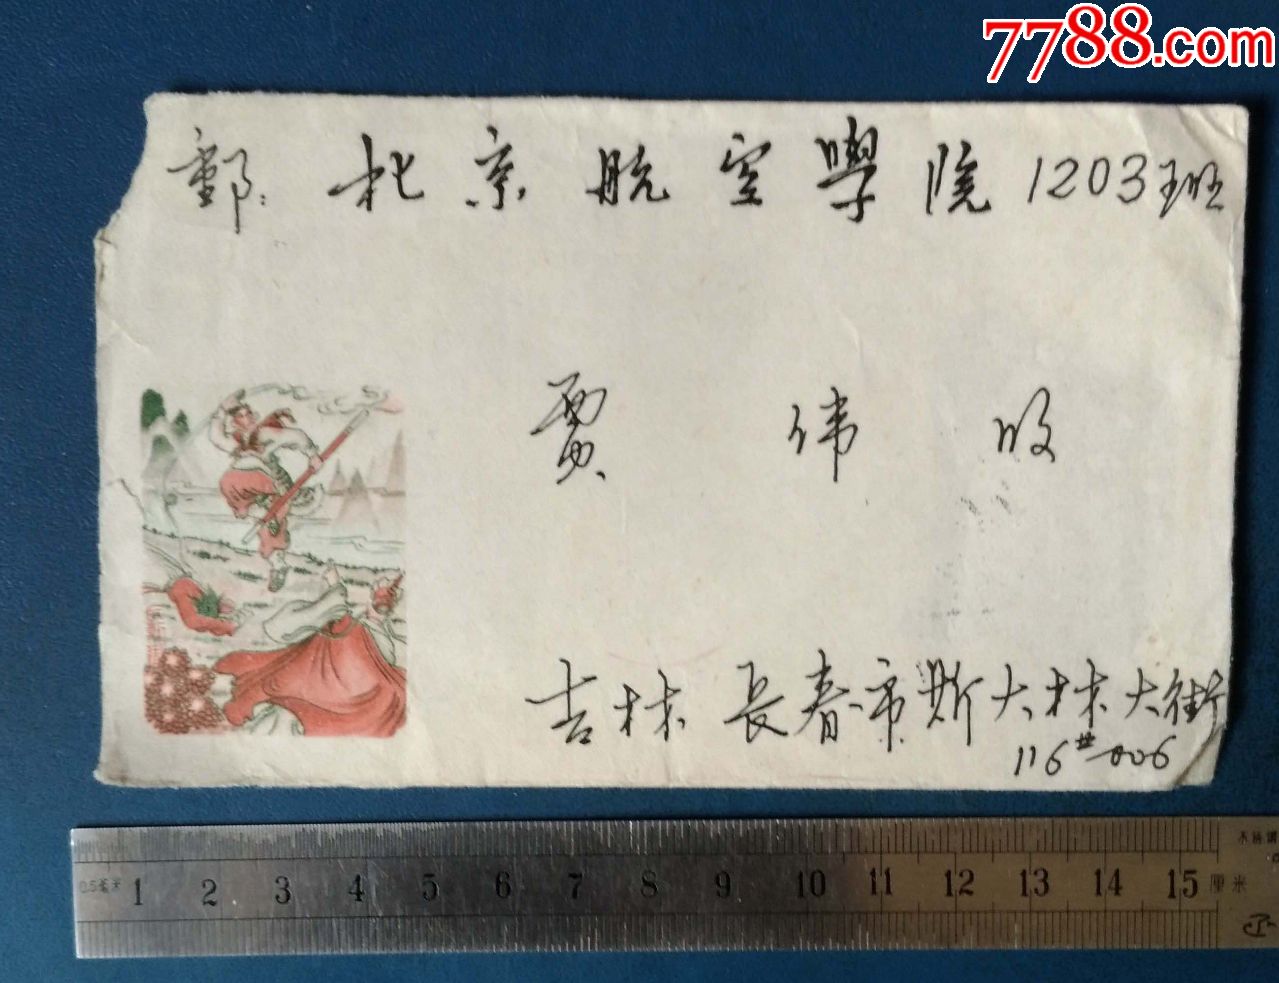 7788.com
郵: 北京航空學院1203班
贾伟收
吉林長春市斯大林大街
116#-006
0.5毫米 1 2 3 4 5 6 7 8 9 10 11 12 13 14 15 厘米